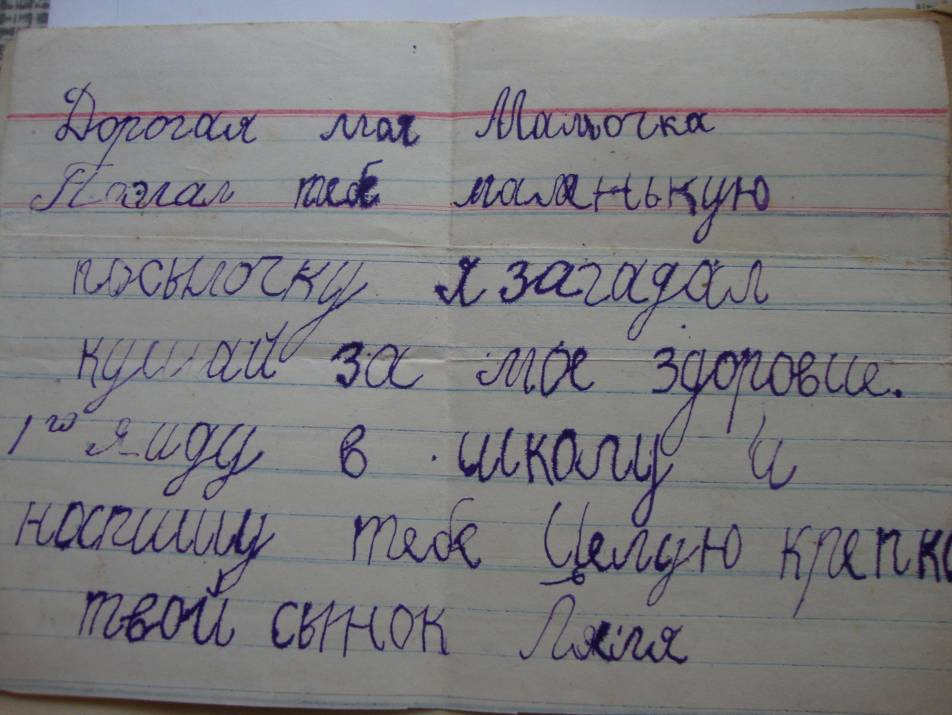 Дорогая мая Мамочка
тебе маленькую
посылочку я загадал
кушай за мое здоровие.
1го я иду в школу и
напишу тебе Целую крепко
твой сынок Ляля